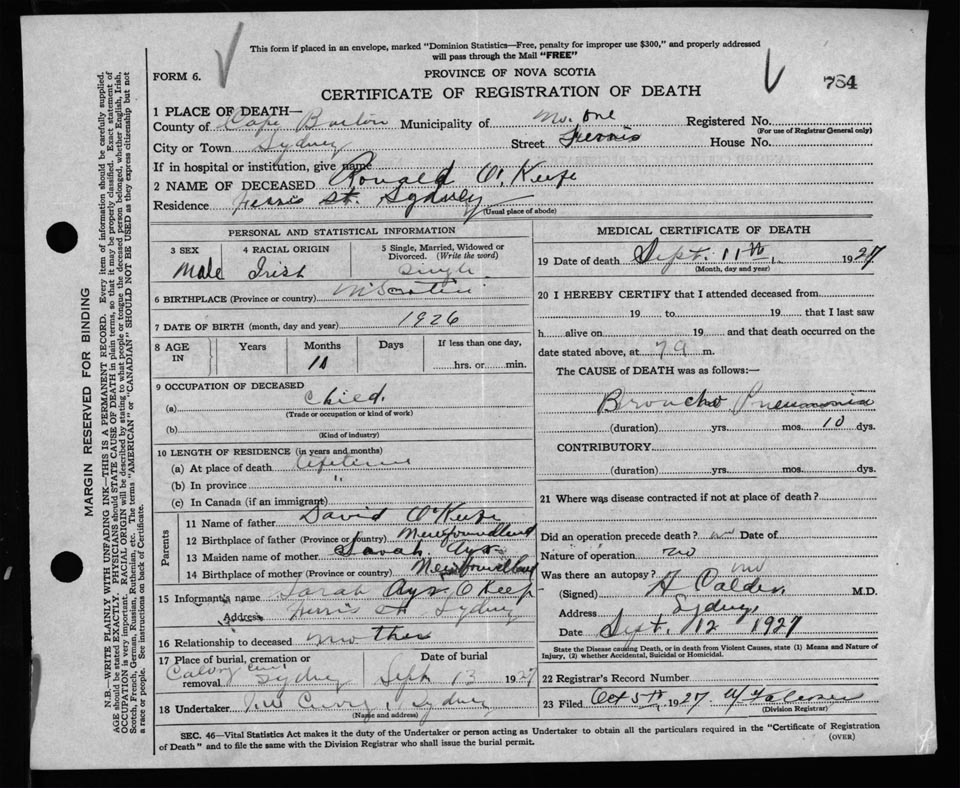 This form if placed in an envelope, marked "Dominion Statistics—Free, penalty for improper use $300," and properly addressed
will pass through the Mail "FREE"
FORM 6.
PROVINCE OF NOVA SCOTIA
784
CERTIFICATE OF REGISTRATION OF DEATH
1 PLACE OF DEATH—
County of Cape Breton Municipality of No. One Registered No.
(For use of Registrar General only)
City or Town Sydney Street Ferris House No.
If in hospital or institution, give name
2 NAME OF DECEASED Ronald O'Keefe
Residence Ferris St. Sydney
(Usual place of abode)
PERSONAL AND STATISTICAL INFORMATION
3 SEX 4 RACIAL ORIGIN 5 Single, Married, Widowed or
Divorced. (Write the word)
Male Irish Single
6 BIRTHPLACE (Province or country) N Scotia
7 DATE OF BIRTH (month, day and year) 1926
8 AGE IN Years Months Days If less than one day,
hrs. or min.
9 OCCUPATION OF DECEASED
(a) Child.
(Trade or occupation or kind of work)
(b)
(Kind of industry)
10 LENGTH OF RESIDENCE (in years and months)
(a) At place of death Lifetime
(b) In province "
(c) In Canada (if an immigrant)
Parents
11 Name of father David O'Keefe
12 Birthplace of father (Province or country) Newfoundland
13 Maiden name of mother Sarah
14 Birthplace of mother (Province or country) Newfoundland
15 Informant's name Sarah O Keef
Address Ferris St Sydney
16 Relationship to deceased Mother
17 Place of burial, cremation or removal Date of burial
Sydney Sept 13 1927
18 Undertaker Sydney
(Name and address)
MEDICAL CERTIFICATE OF DEATH
19 Date of death Sept. 11th, 1927
(Month, day and year)
20 I HEREBY CERTIFY that I attended deceased from
19 to 19 that I last saw
h alive on 19 and that death occurred on
date stated above, at 7 a m.
The CAUSE of DEATH was as follows:
Broncho Pneumonia
(duration) yrs. mos. 10 dys.
CONTRIBUTORY.
(duration) yrs. mos. dys.
21 Where was disease contracted if not at place of death?
Did an operation precede death? no Date of
Nature of operation no
Was there an autopsy? no
(Signed) H Calder M.D.
Address Sydney
Date Sept. 12 1927
State the Disease causing Death, or in death from Violent Causes, state (1) Means and Nature of
Injury, (2) whether Accidental, Suicidal or Homicidal.
22 Registrar's Record Number
23 Filed Oct 5th 1927.
(Division Registrar)
SEC. 46—Vital Statistics Act makes it the duty of the Undertaker or person acting as Undertaker to obtain all the particulars required in the "Certificate of Registration
of Death" and to file the same with the Division Registrar who shall issue the burial permit.
(OVER)
MARGIN RESERVED FOR BINDING
N.B.—WRITE PLAINLY WITH UNFADING INK—THIS IS A PERMANENT RECORD. Every item of information should be carefully supplied.
AGE should be stated EXACTLY. PHYSICIANS should STATE CAUSE OF DEATH in plain terms, so that it may be properly classified. Exact statement of
OCCUPATION is very important. RACIAL ORIGIN will be described by stating to what people or tongue the deceased person belonged, whether English, Irish,
Scotch, French, German, Russian, Ruthenian, etc. The terms "AMERICAN" or "CANADIAN" SHOULD NOT BE USED as they express citizenship but not
a race or people. See instructions on back of Certificate.